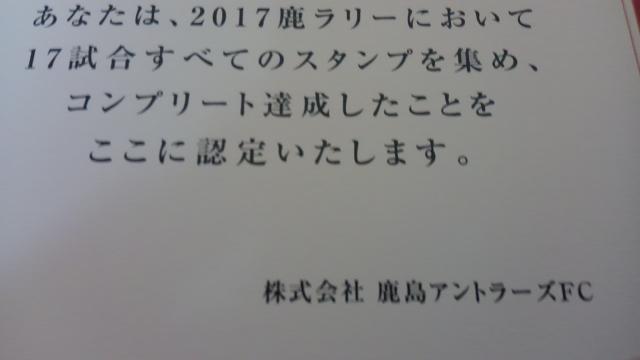 あなたは、2017鹿ラリーにおいて
17試合すべてのスタンプを集め、
コンプリート達成したことを
ここに認定いたします。
株式会社 鹿島アントラーズFC